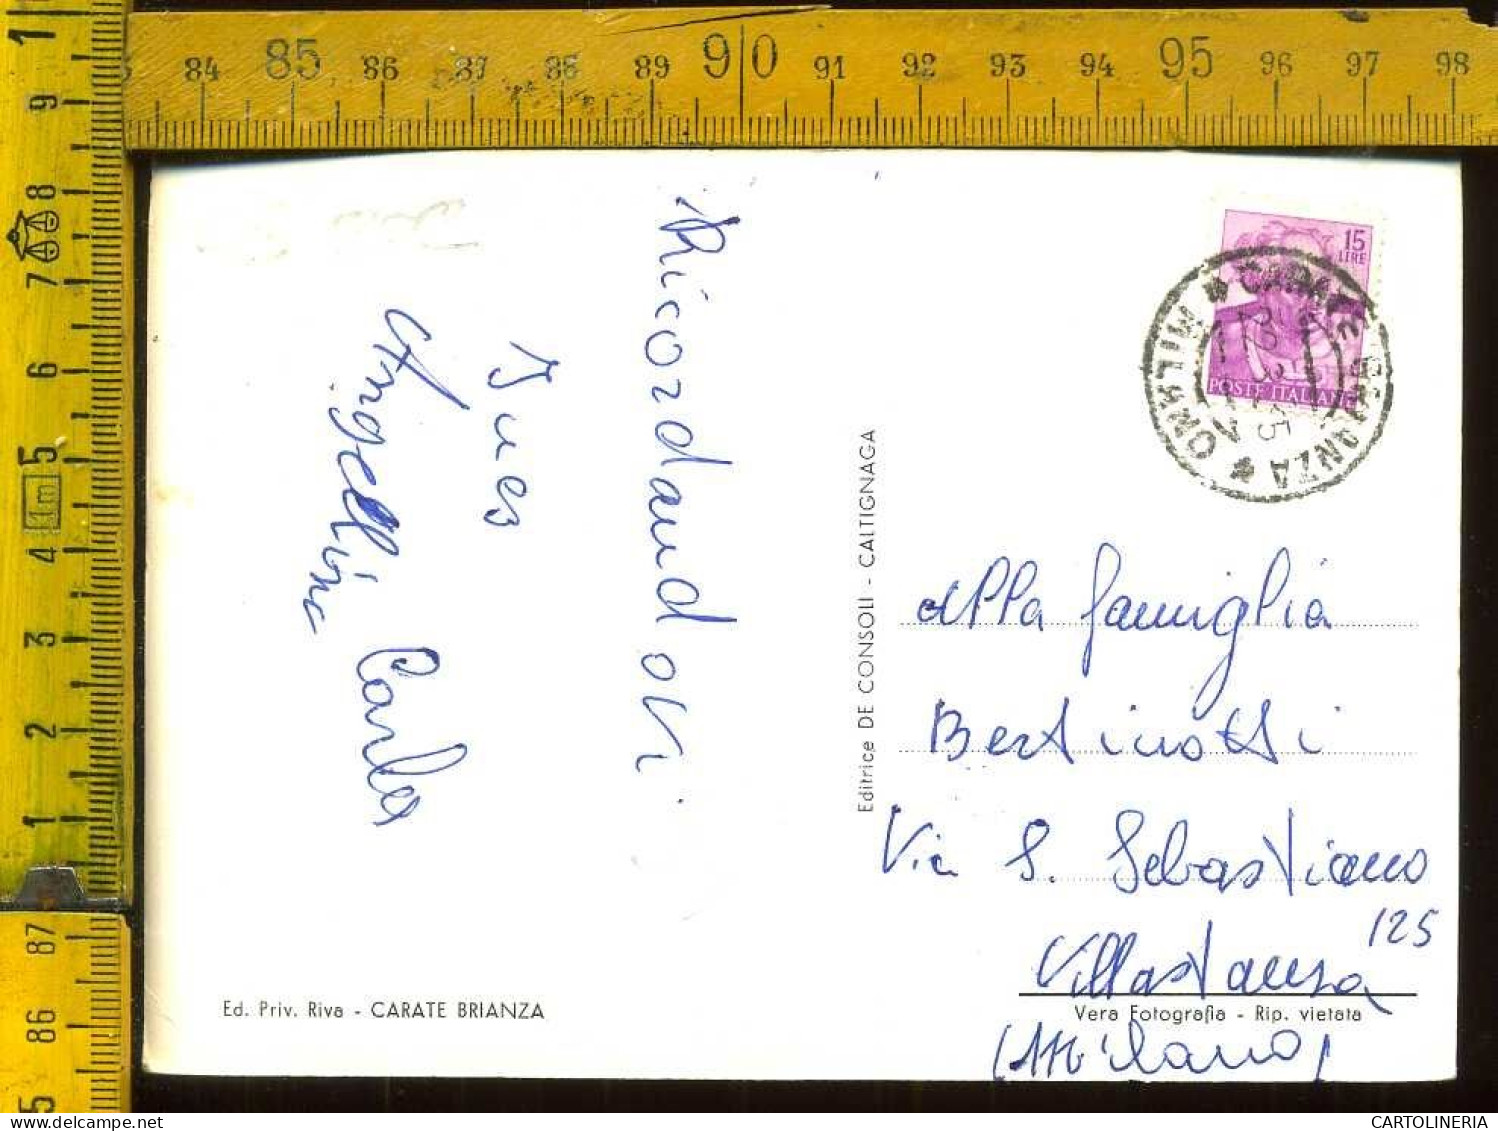 84 85 86 87 88 89 90 91 92 93 94 95 96 97 98
1 9 8 7 6 5 4 3 2 1 87 86
1m
Ricordandovi
Ines
Angelline Carla
Ed. Priv. Riva - CARATE BRIANZA
Editrice DE CONSOLI - CALTIGNAGA
15
LIRE
POSTE ITALIANE
CARATE BRIANZA
MILANO
Alla famiglia
Bertinotti
Via S. Sebastiano
125
Villastanza
Vera Fotografia - Rip. vietata
(Milano)
CARTOLINERIA